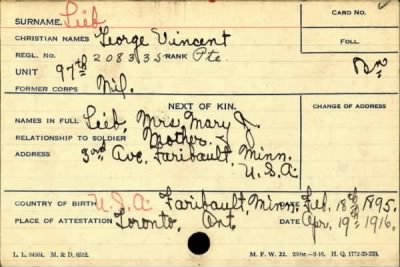 SURNAME. Lieb CARD NO.
CHRISTIAN NAMES George Vincent FOLL.
REGL. NO. 208335 RANK Pte.
UNIT 97th Bn
FORMER CORPS Nil.
NEXT OF KIN. CHANGE OF ADDRESS
NAMES IN FULL Lieb, Mrs. Mary J.
RELATIONSHIP TO SOLDIER Mother.
ADDRESS 3rd Ave, Faribault, Minn.
U.S.A.
COUNTRY OF BIRTH U.S.A. Faribault, Minn. DATE Feb. 18th 1895.
PLACE OF ATTESTATION Toronto, Ont. DATE Apr. 19th 1916.
L. L. 94504. M. & D. 6512. M. F. W. 22. H. Q. 1772-39-339.